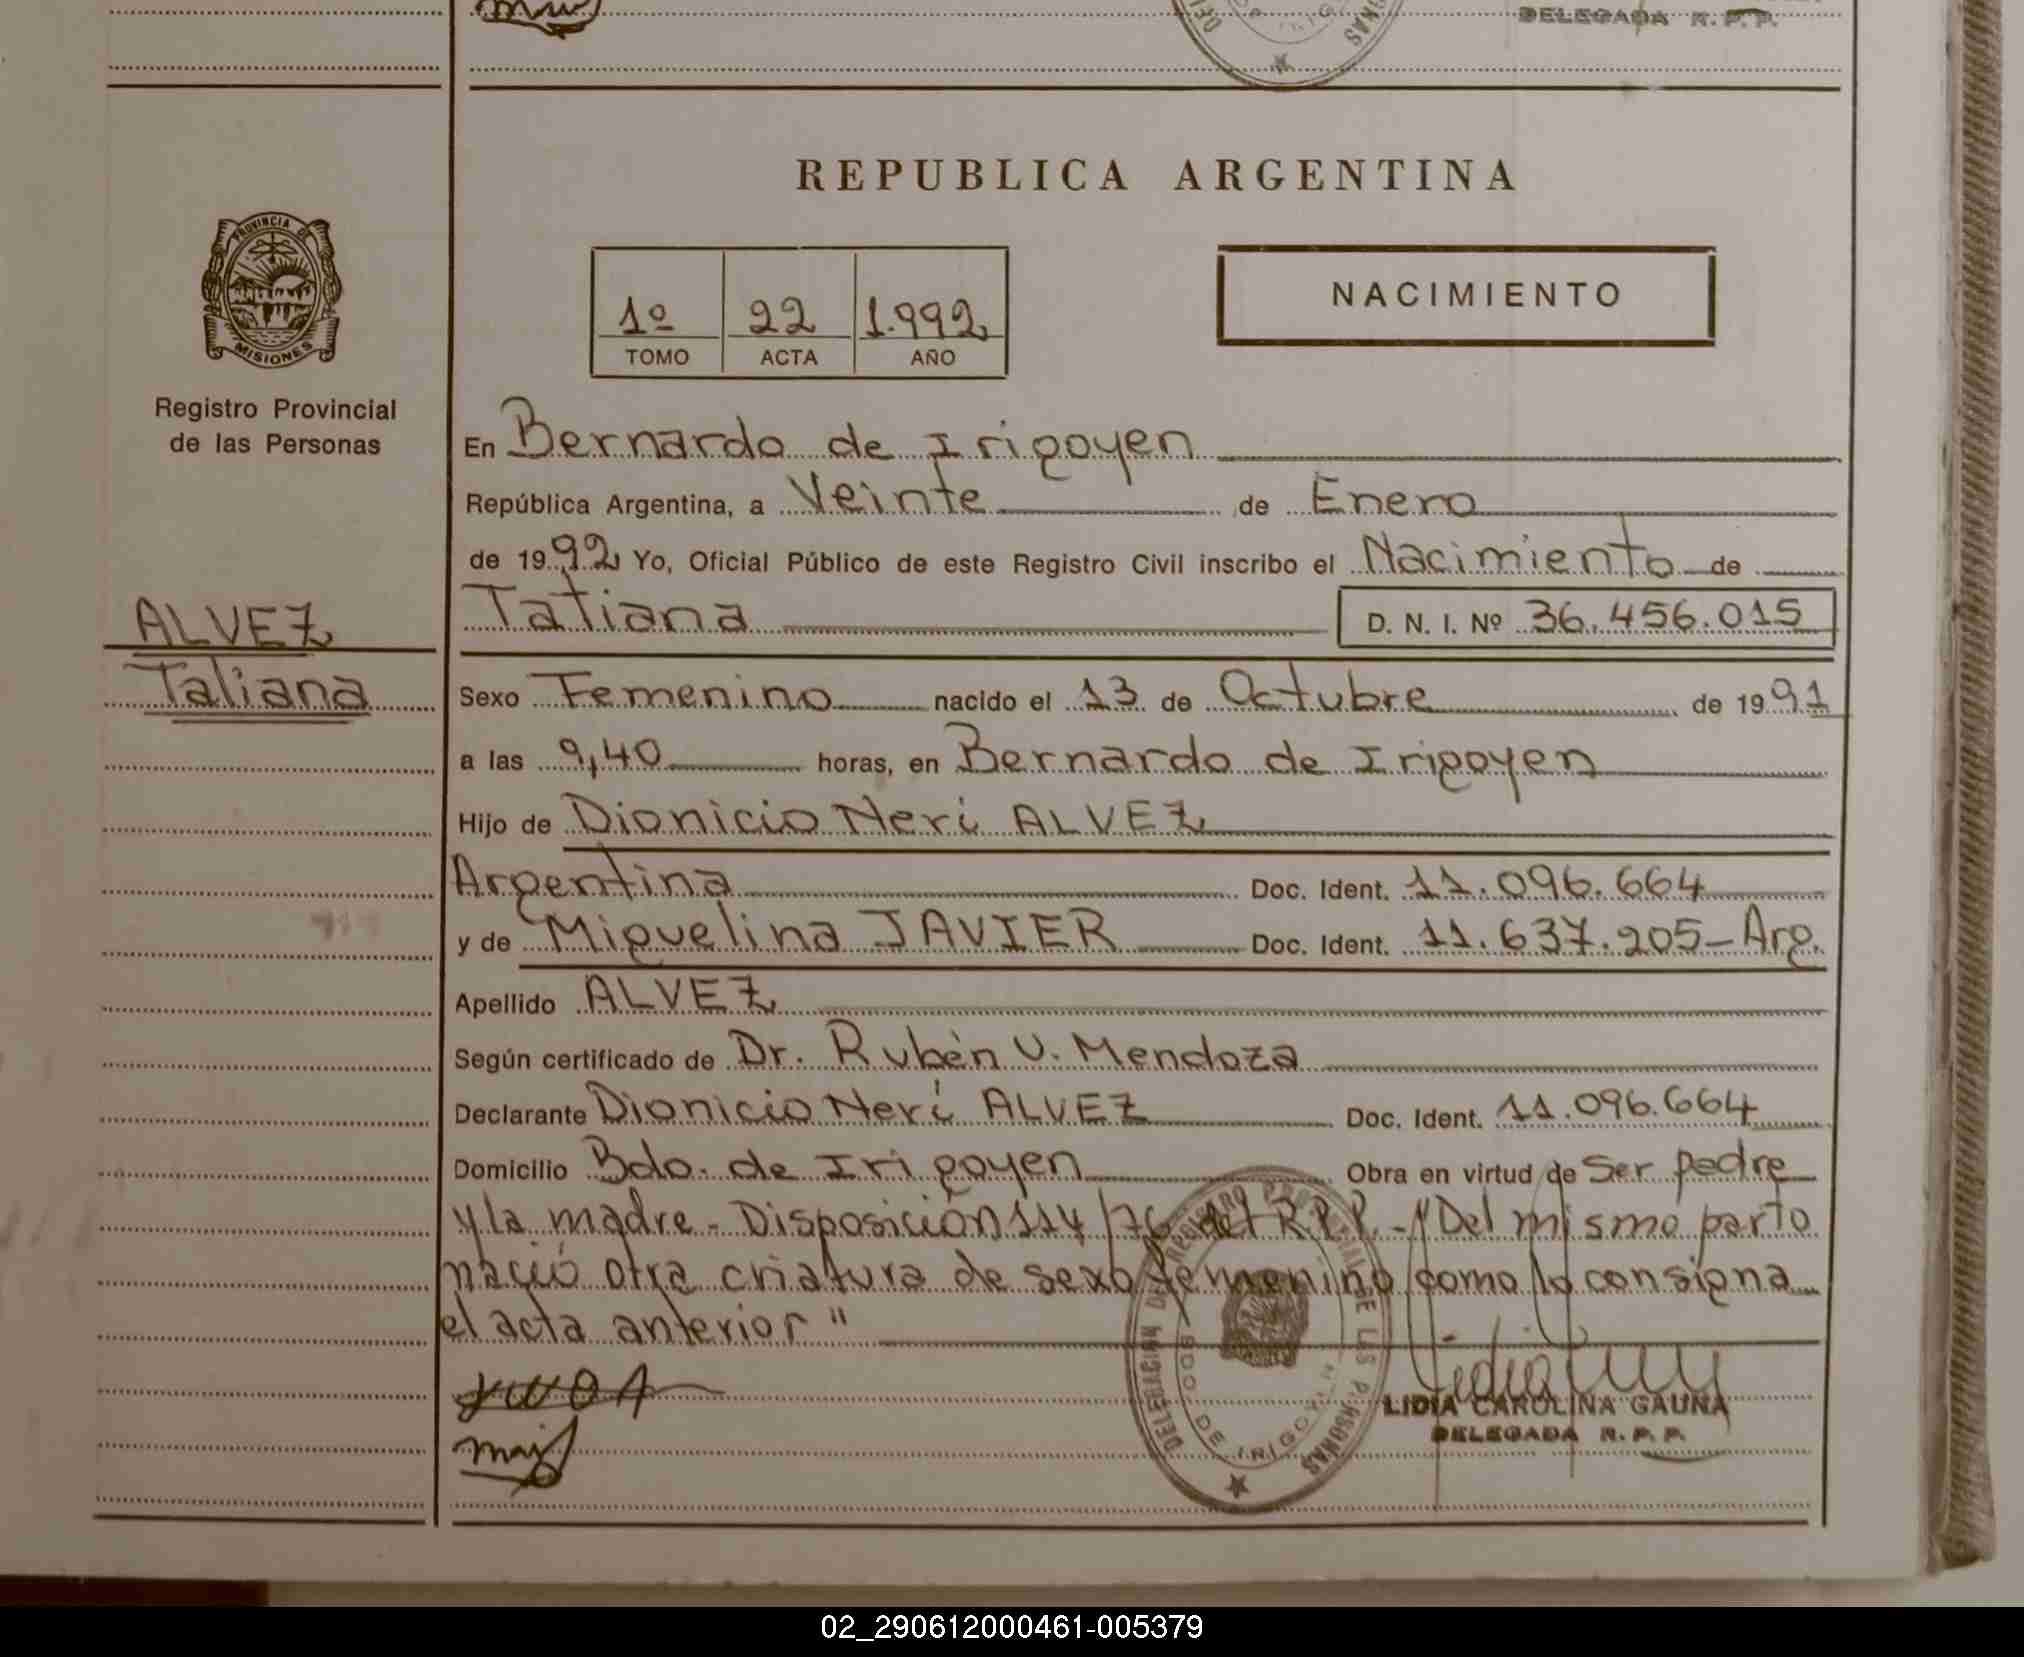 DELEGADA R. P. P.
REPUBLICA ARGENTINA
PROVINCIA DE
MISIONES
Registro Provincial
de las Personas
1º 22 1.992
TOMO ACTA AÑO
NACIMIENTO
En Bernardo de Irigoyen
República Argentina, a Veinte de Enero
de 1992 Yo, Oficial Público de este Registro Civil inscribo el Nacimiento de
ALVEZ
Tatiana
Tatiana D. N. I. Nº 36.456.015
Sexo Femenino nacido el 13 de Octubre de 1991
a las 9,40 horas, en Bernardo de Irigoyen
Hijo de Dionicio Neri ALVEZ
Argentina Doc. Ident. 11.096.664
y de Miguelina JAVIER Doc. Ident. 11.637.205-Arg.
Apellido ALVEZ
Según certificado de Dr. Rubén U. Mendoza
Declarante Dionicio Neri ALVEZ Doc. Ident. 11.096.664
Domicilio Bdo. de Irigoyen Obra en virtud de Ser padre
y la madre - Disposición 114/76 del R.P.P. - "Del mismo parto
nació otra criatura de sexo femenino como lo consigna
el acta anterior"
DELEGACION DEL REGISTRO PROVINCIAL DE LAS PERSONAS
BDO. DE IRIGOYEN
LIDIA CAROLINA GAUNA
DELEGADA R. P. P.
02_290612000461-005379